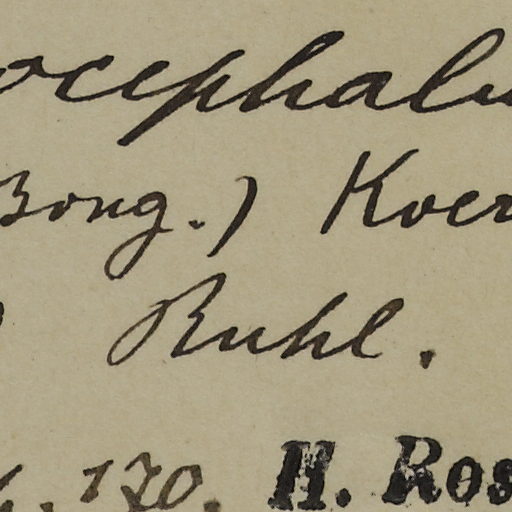 ocephalu
Bong.) Koer
Ruhl.
. 170. H. Ros